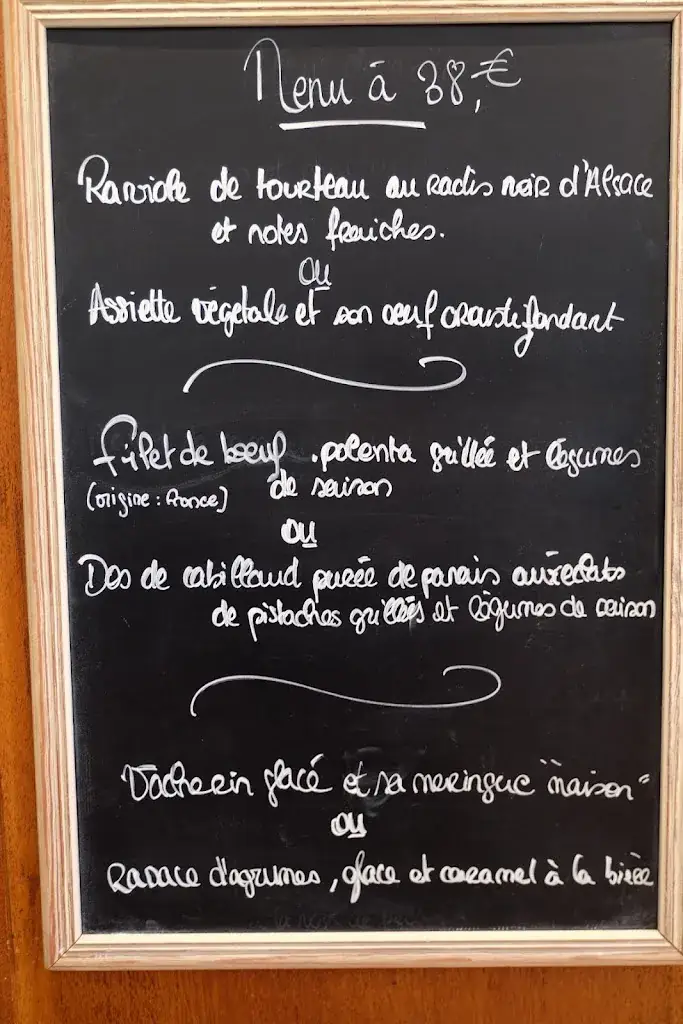 Menu à 38,€
Raviole de tourteau au radis noir d'Alsace
et notes fraiches.
ou
Assiette végétale et son oeuf croustifondant
filet de boeuf, polenta grillée et légumes
(origine : France) de saison
ou
Dos de cabillaud purée de panais aux éclats
de pistaches grillés et légumes de saison
Vacherin glacé et sa meringue "maison"
ou
Rosace d'agrumes, glace et caramel à la bière